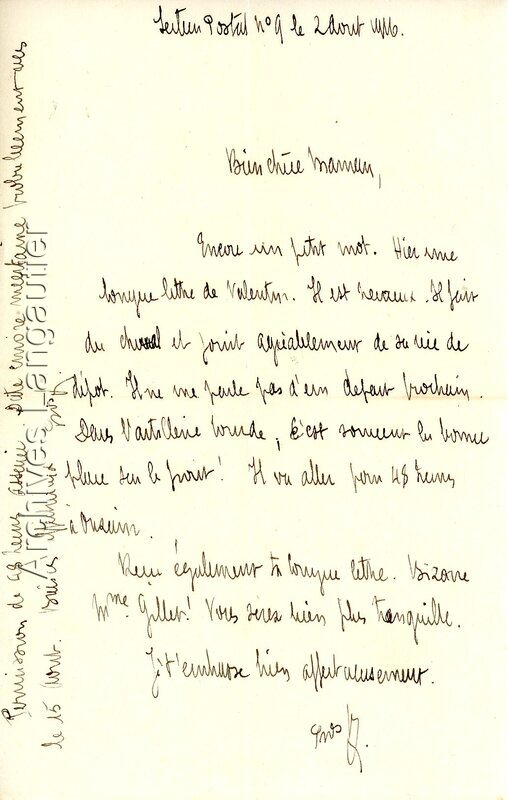 Secteur Postal n° 9 le 2 Aout 1916.
Bien chère Maman,
Encore un petit mot. Hier une
longue lettre de Valentin. Il est heureux. Il fait
du cheval et jouit agréablement de sa vie de
dépôt. Il ne me parle pas d'un depart prochain.
Dans l'artillerie lourde, c'est souvent la bonne
place sur le front! Il va aller pour 48 heures
à
Reçu également ta longue lettre. Bizarre
Mme Gillet! Vous serez bien plus tranquille.
Je t'embrasse bien affectueusement.
Permission de 48 heures Date encore incertaine probablement vers
le 15 Aout. Baisers
Archives Langautier